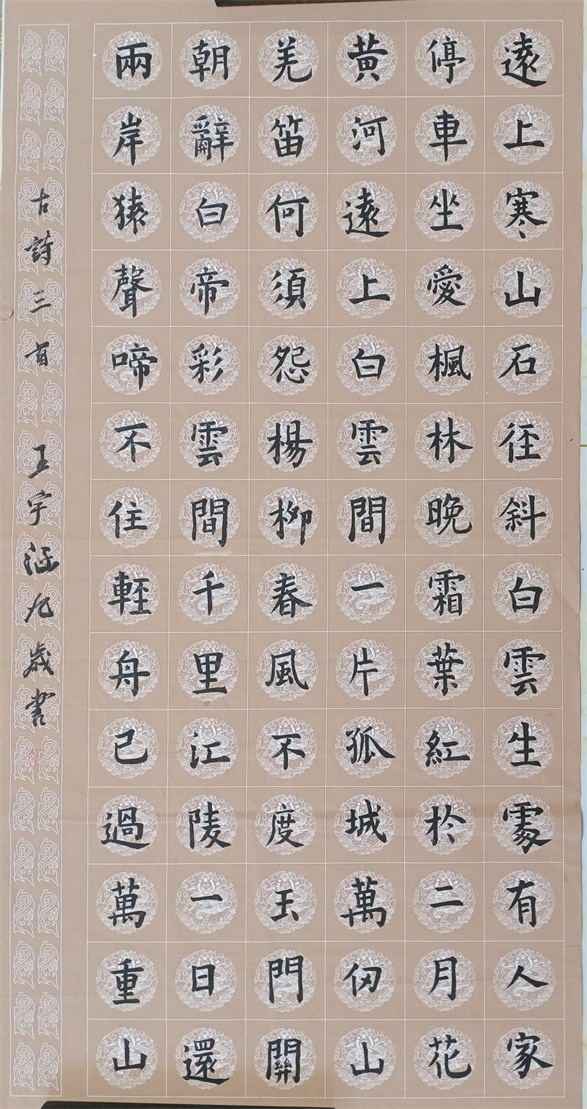 遠上寒山石徑斜白雲生處有人家
停車坐愛楓林晚霜葉紅於二月花
黄河遠上白雲間一片狐城萬仞山
羌笛何須怨楊柳春風不度玉門關
朝辭白帝彩雲間千里江陵一日還
兩岸猿聲啼不住輕舟已過萬重山
古詩三首 王宇涵九歲書